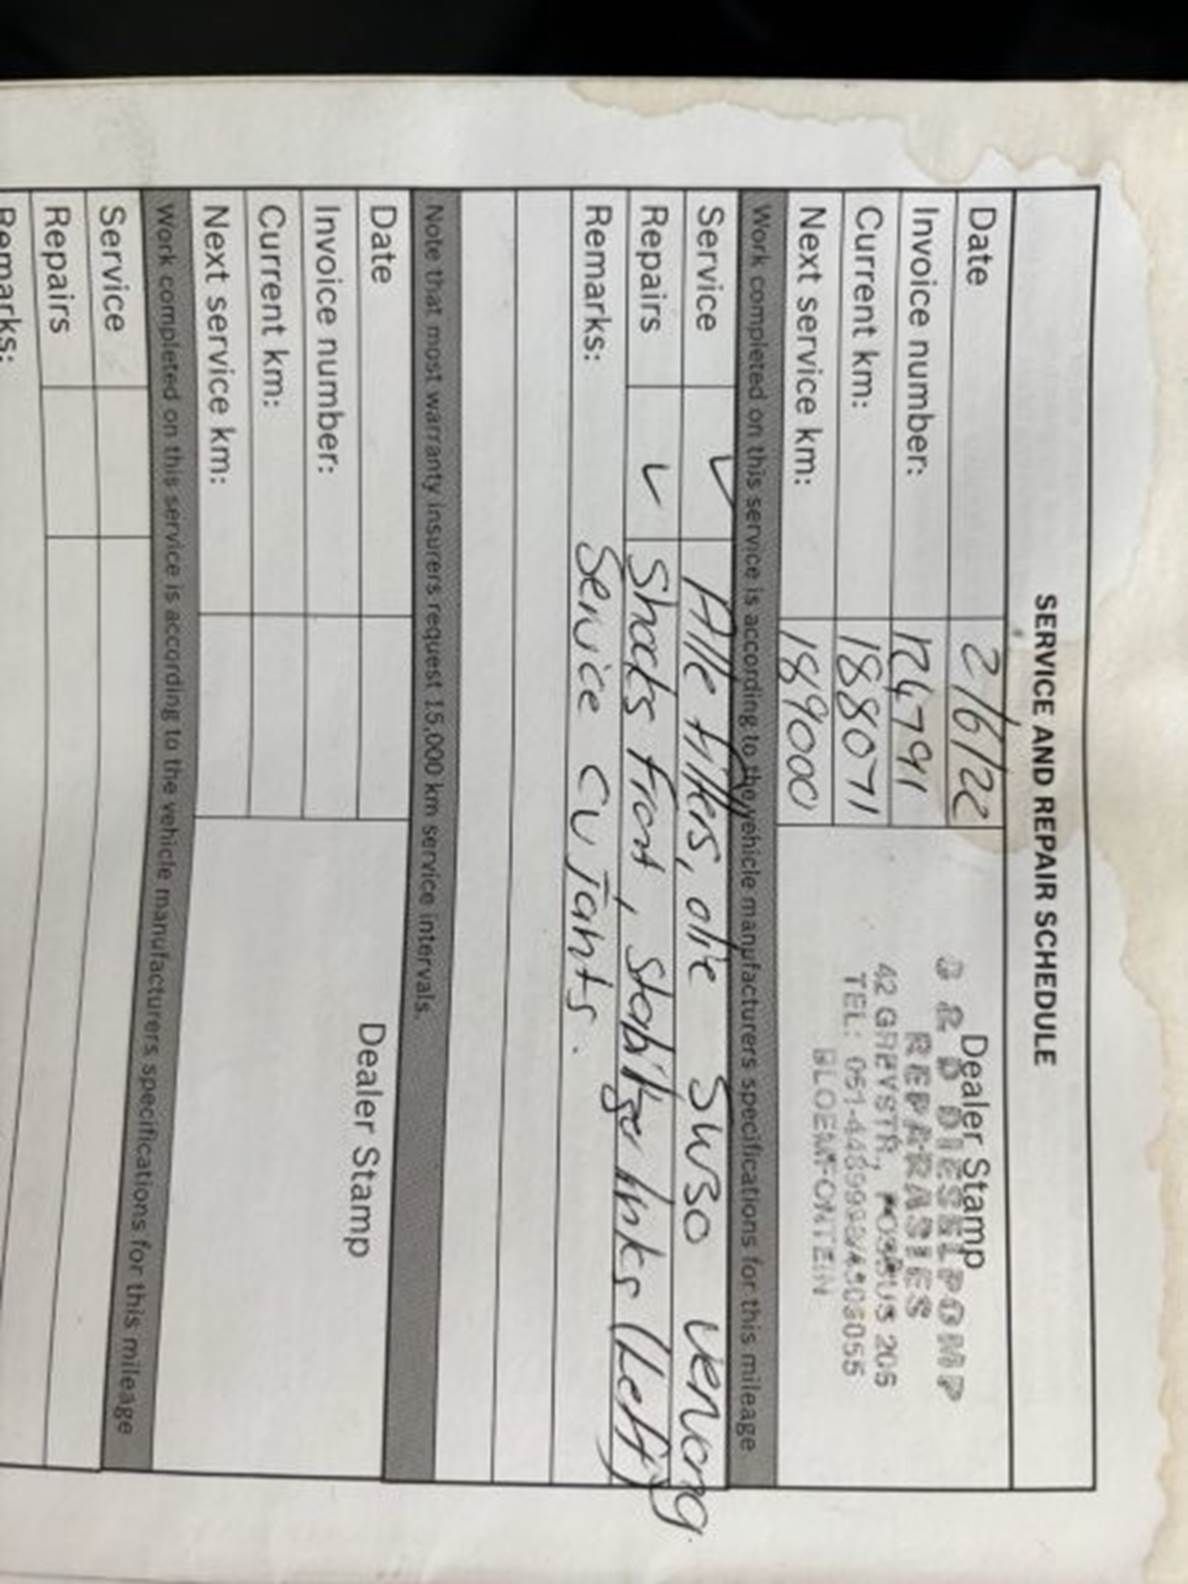 SERVICE AND REPAIR SCHEDULE
Date 2/6/22 Dealer Stamp
Invoice number: 124791
Current km: 188071
Next service km: 189000
DIESELPOMP
REPARASIES
42 GREYSTR, POSBUS 206
TEL: 051-
BLOEMFONTEIN
Work completed on this service is according to the vehicle manufacturers specifications for this mileage
Service ✓ Alle filters, olie 5W30 vervang
Repairs ✓ Shocks front, stabilizer links (Left)
Remarks: Service CV Joints.
Note that most warranty insurers request 15,000 km service intervals.
Date Dealer Stamp
Invoice number:
Current km:
Next service km:
Work completed on this service is according to the vehicle manufacturers specifications for this mileage
Service
Repairs
Remarks: